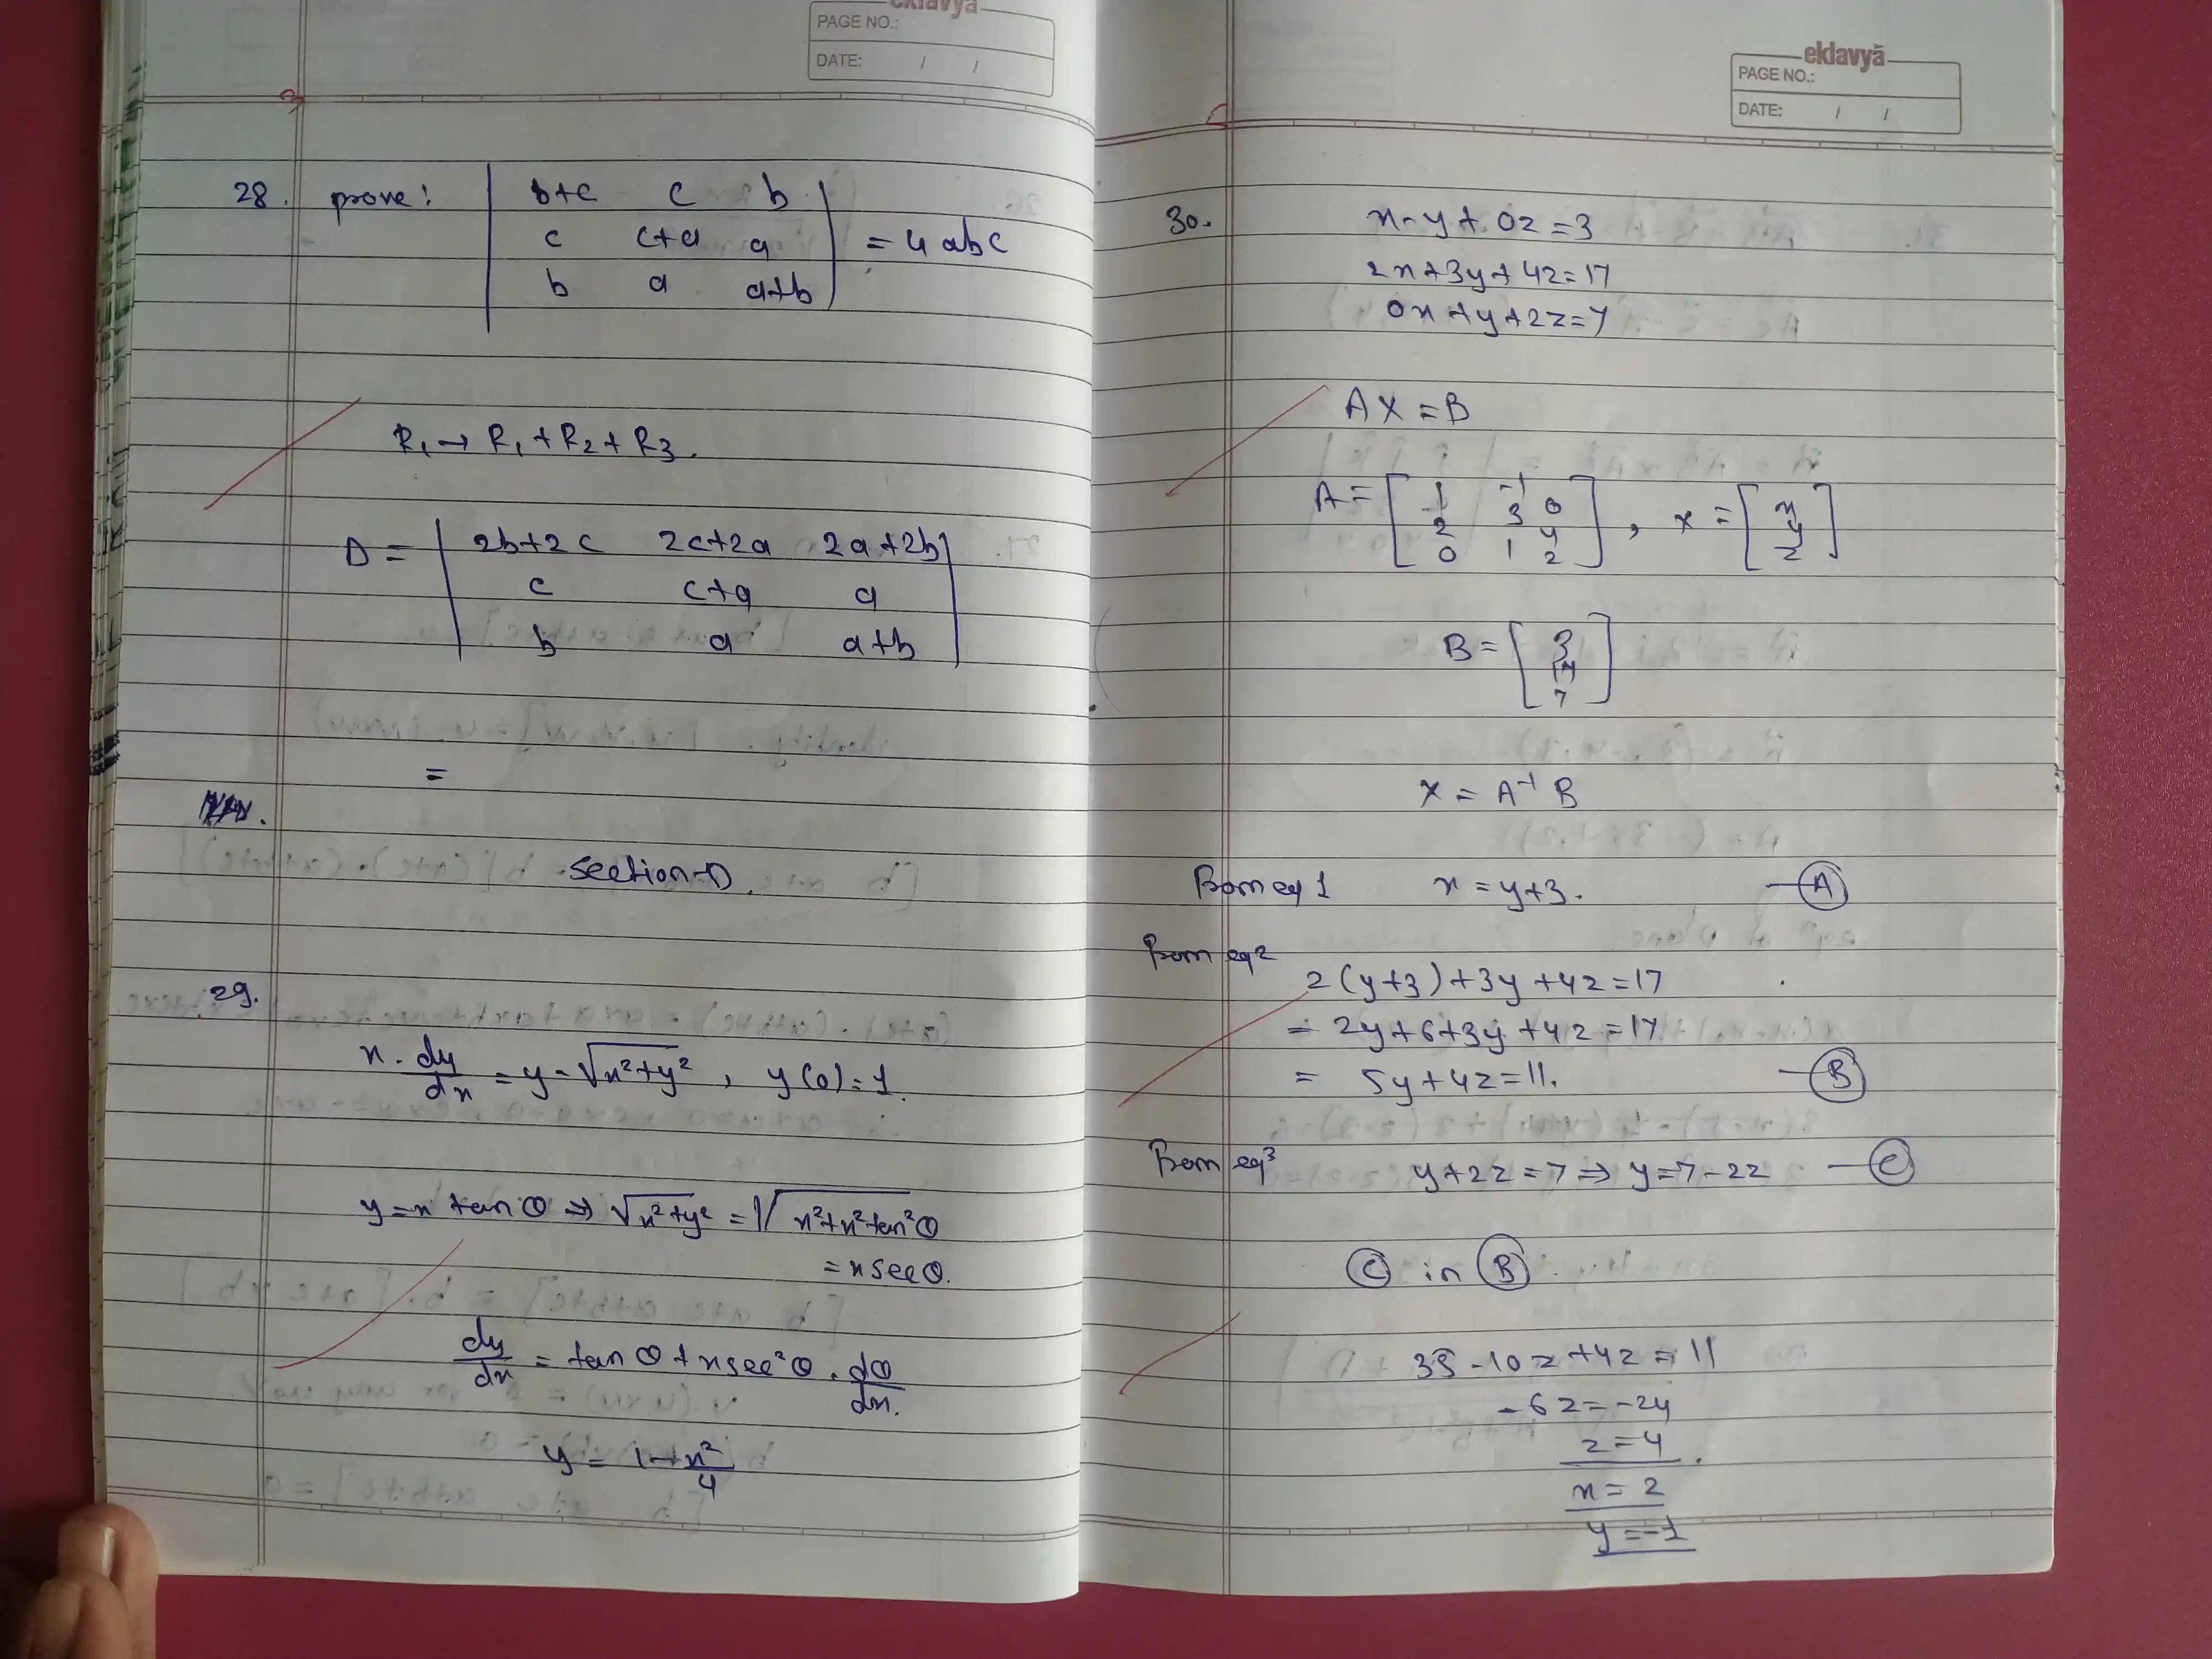 eklavya
PAGE NO.:
DATE: / /
28. prove: | b+c c b |
| c c+a a | = 4abc
| b a a+b |
R1 → R1 + R2 + R3.
D = | 2b+2c 2c+2a 2a+2b |
| c c+a a |
| b a a+b |
=
Section-D.
29.
x. dy/dx = y - √x²+y² , y(0)=1.
y = x tan θ ⇒ √x²+y² = √x²+x²tan²θ
= x sec θ.
dy/dx = tan θ + x sec²θ . dθ/dx.
y = 1 - x²/4
eklavyā
PAGE NO.:
DATE: / /
30. x - y + 0z = 3
2x + 3y + 4z = 17
0x + y + 2z = 7
AX = B
A = [ 1 -1 0
2 3 4
0 1 2 ] , x = [ x
y
z ]
B = [ 3
17
7 ]
X = A⁻¹ B
From eq 1 x = y+3. — A
From eq 2
2(y+3) + 3y + 4z = 17
= 2y + 6 + 3y + 4z = 17
= 5y + 4z = 11. — B
From eq 3 y + 2z = 7 ⇒ y = 7 - 2z — C
C in B
35 - 10z + 4z = 11
- 6z = -24
z = 4.
x = 2
y = -1